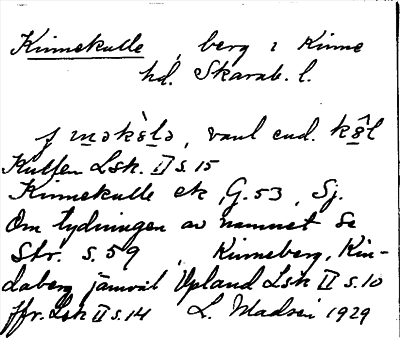 Kinnekulle, berg i Kinne
hd. Skarab. l.
vanl end.
Kullen Lsk. II s. 15
Kinnekulle ek, G. 53, Sj.
Om tydningen av namnet se
Str. s. 59, Kinneberg, Kin-
daberg jämväl Upland Lsk II s. 10
Jfr. Lsk II s. 14 L. Madsén 1929